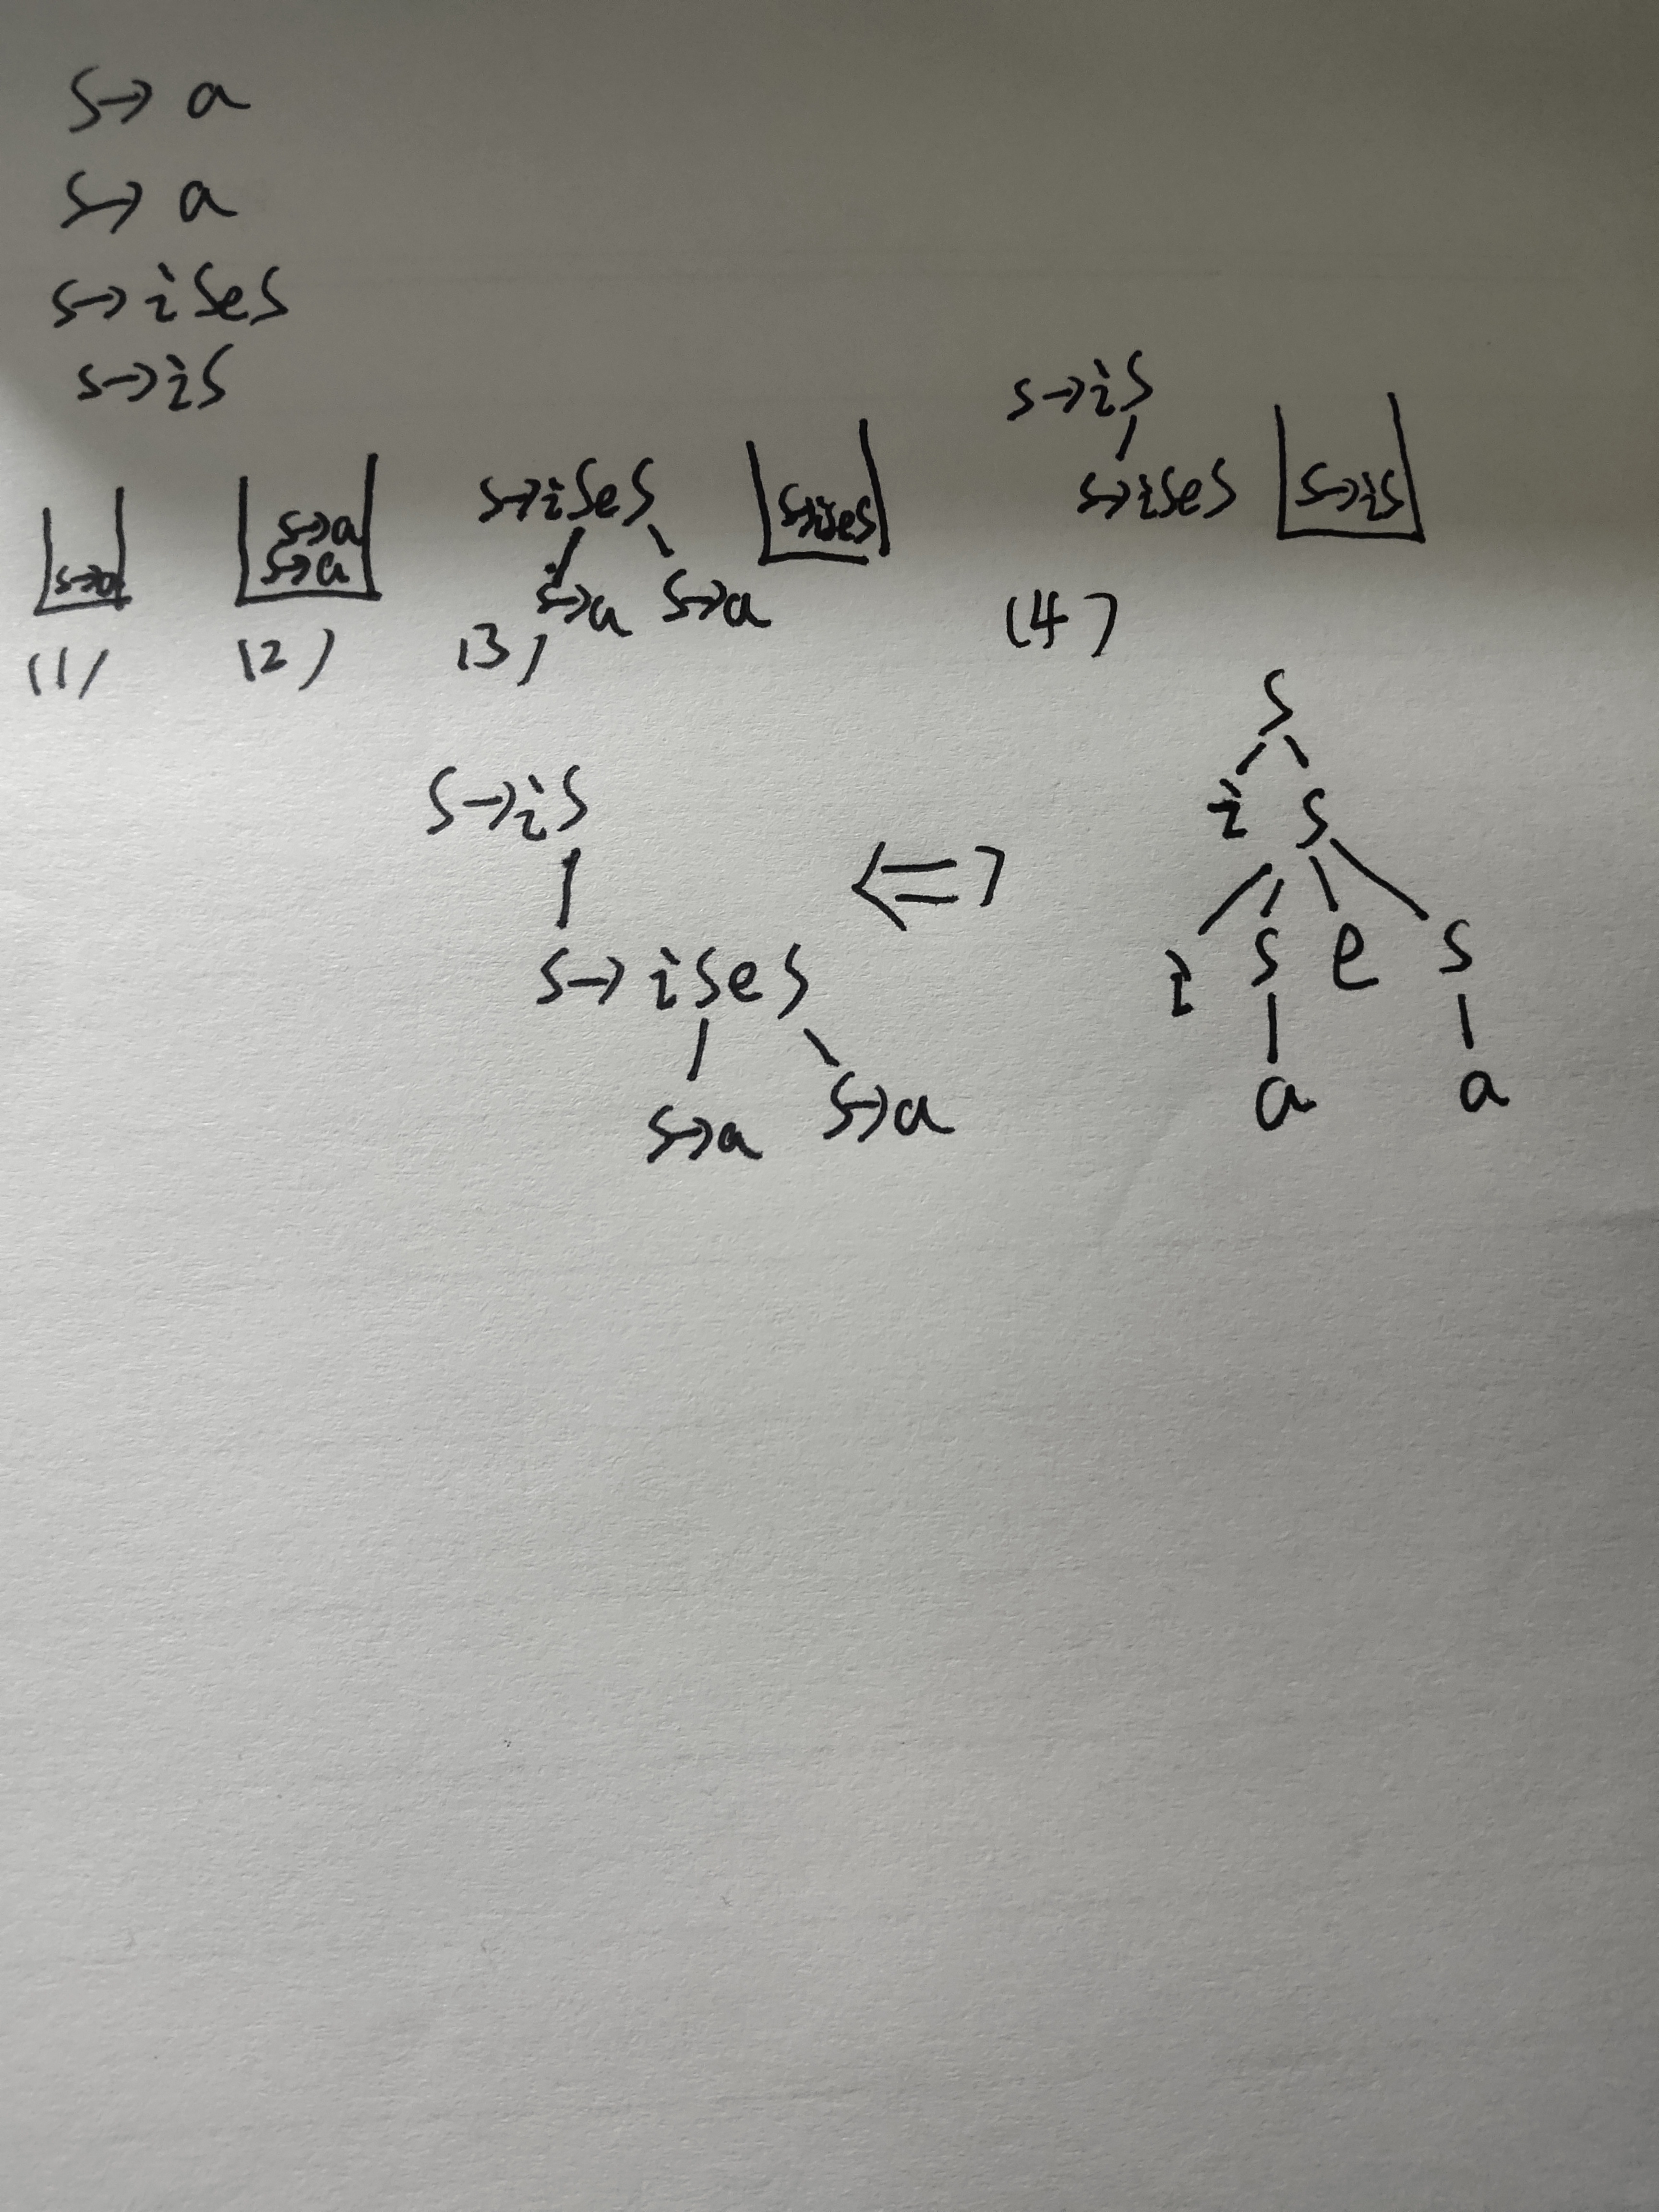 S→a
S→a
S→iSeS
S→iS
S→a
(1)
S→a
S→a
(2)
S→iSeS
S→a S→a
S→iSeS
(3)
S→iS
S→iSeS
S→iS
(4)
S→iS
S→iSeS
S→a S→a
<=>
S
i S
i S e S
a a